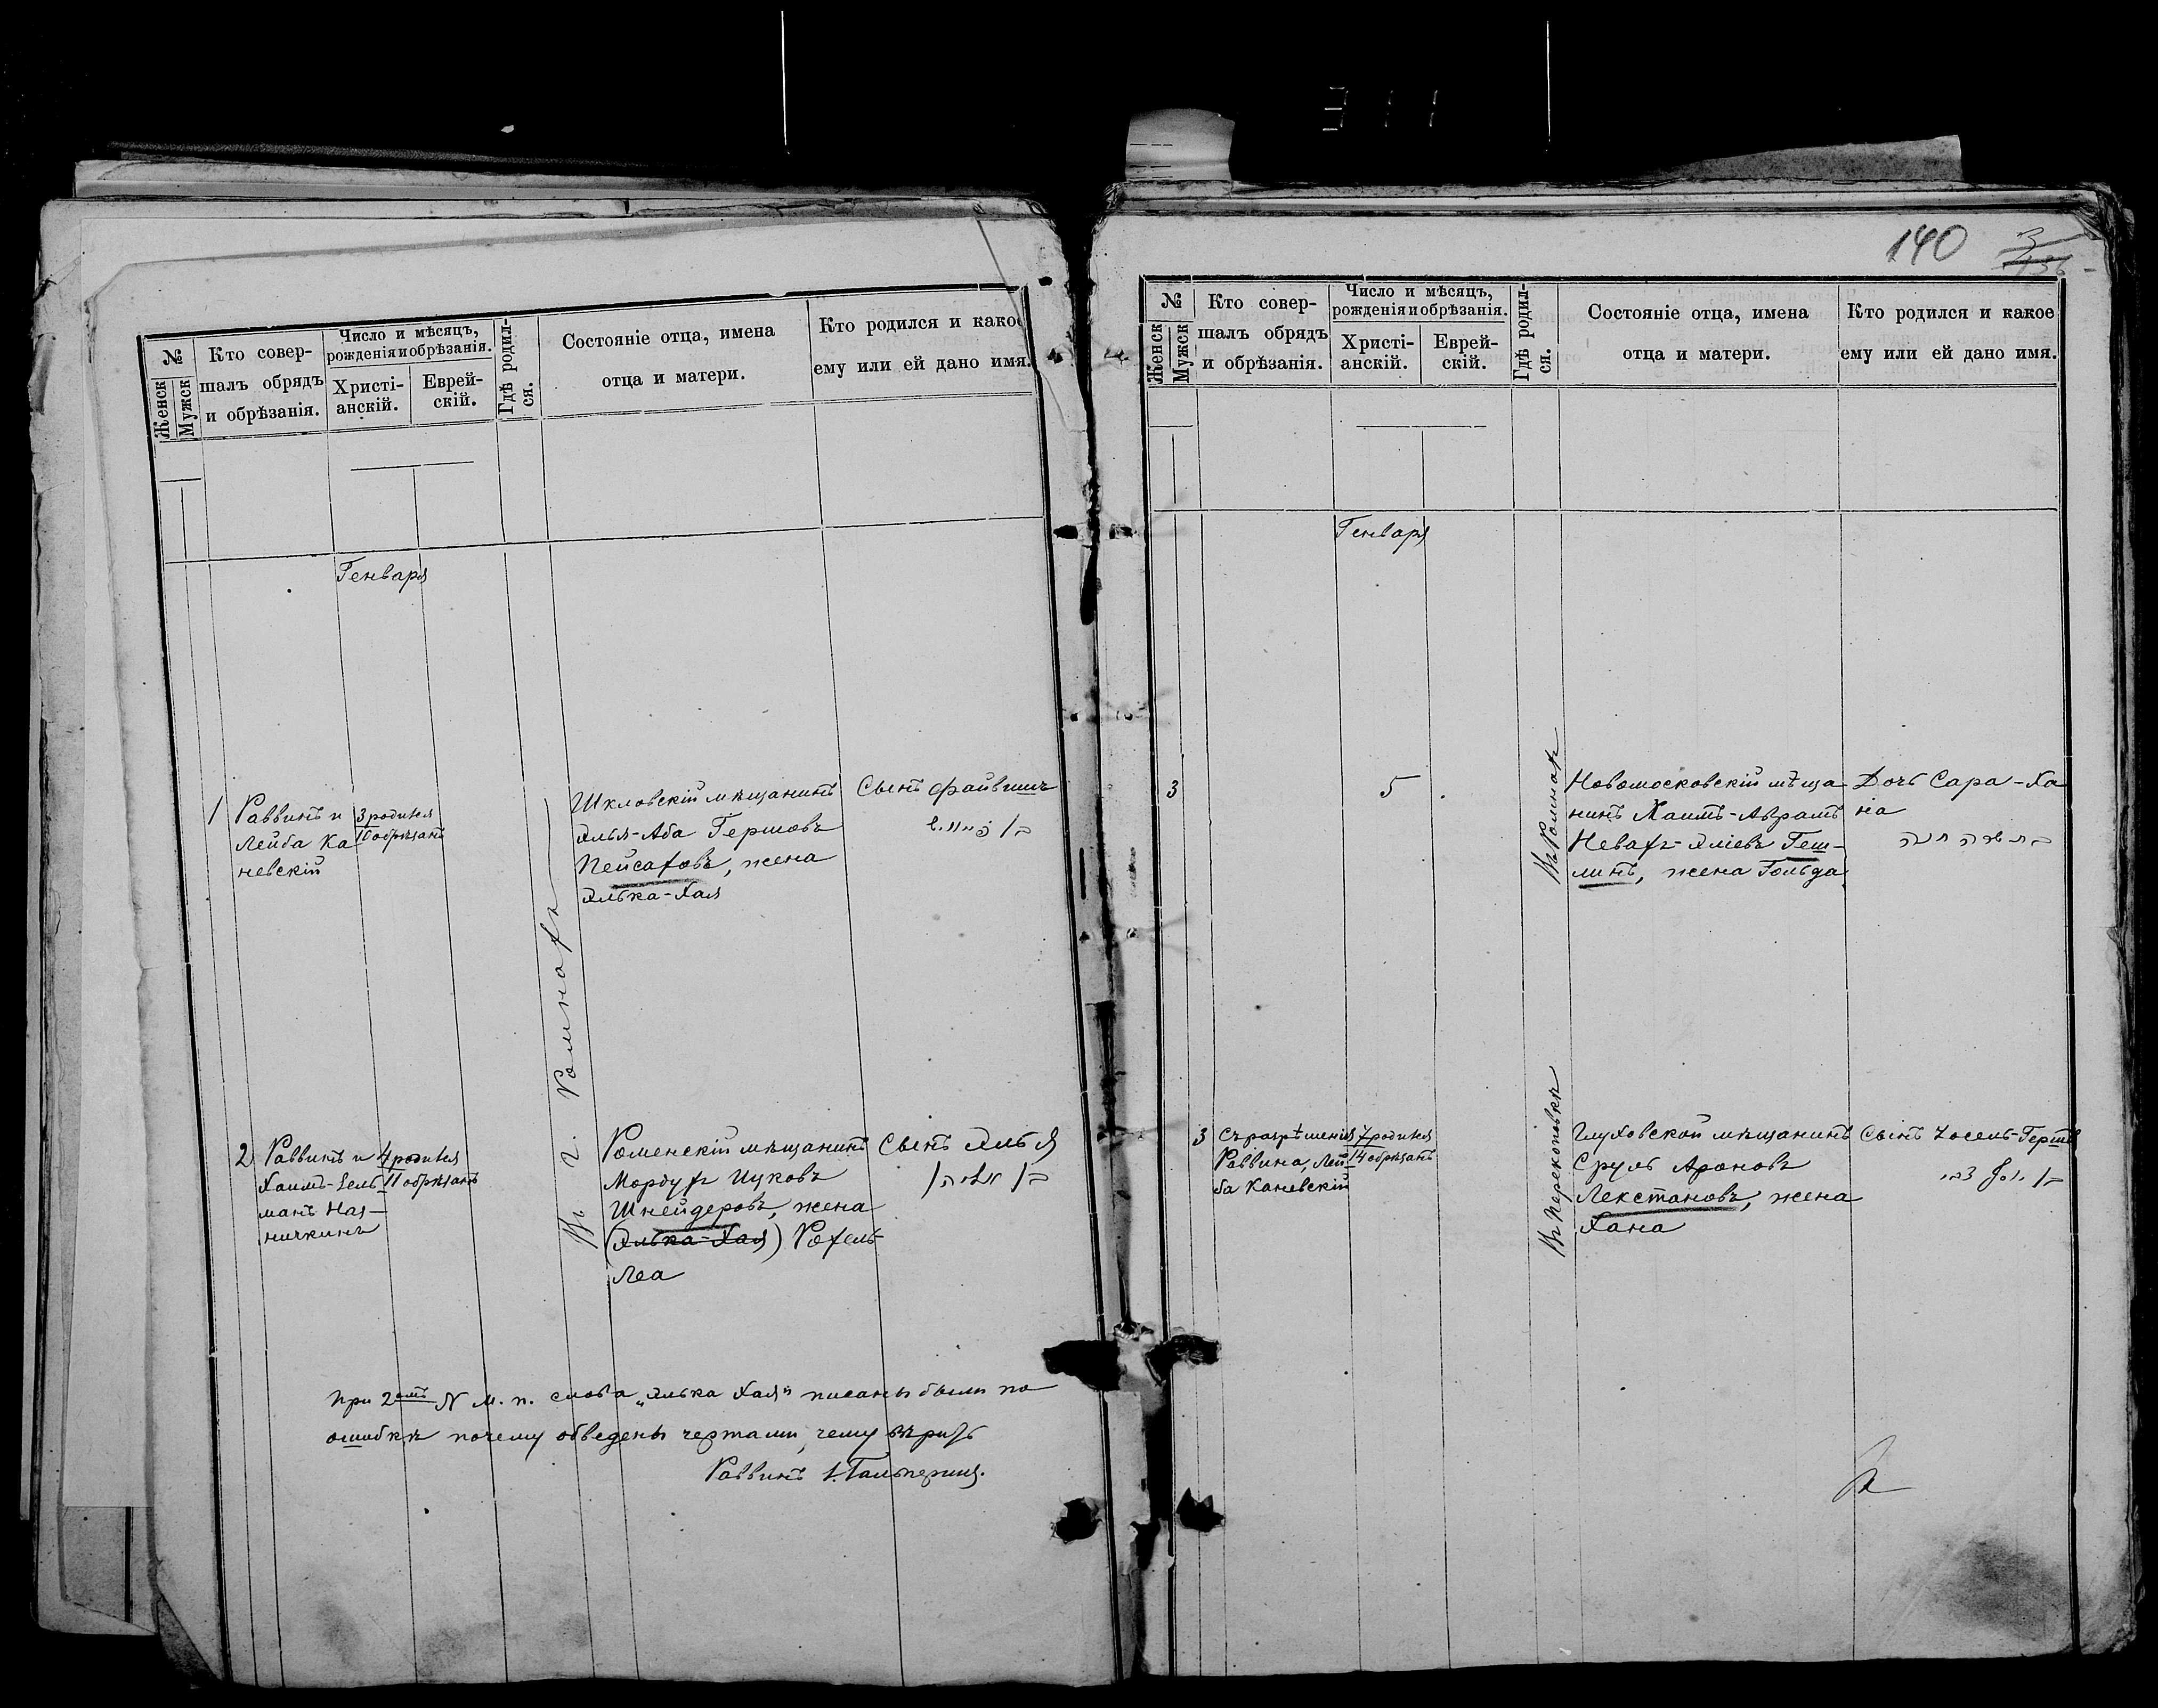 311
№
Женск
Мужск
Кто совер-
шалъ обрядъ
и обрѣзанія.
Число и мѣсяцъ,
рожденія и обрѣзанія.
Христі-
анскій.
Еврей-
скій.
Гдѣ родил-
ся.
Состояніе отца, имена
отца и матери.
Кто родился и какое
ему или ей дано имя.
Генваря
1
Раввинъ и
Лейба Ка
невскій
3 родился
10 обрѣзанъ
Въ г. Ромнахъ
Шкловскій мѣщанинъ
Элья-Аба Гершовъ
Пейсаховъ, жена
Элька-Хая
Сынъ Файвишъ
2
Раввинъ и
Хаимъ-Зель
манъ
4 родился
11 обрѣзанъ
Роменскій мѣщанинъ
Мордухъ Ицковъ
Шнейдеровъ, жена
(Элька-Хая) Рохель-
Леа
Сынъ Элья
При 2омъ N м. п. слова „Элька Хая" писаны были по
ошибкѣ почему обведены чертами, чему вѣрить
Раввинъ Гальперинъ.
140
№
Женск
Мужск
Кто совер-
шалъ обрядъ
и обрѣзанія.
Число и мѣсяцъ,
рожденія и обрѣзанія.
Христі-
анскій.
Еврей-
скій.
Гдѣ родил-
ся.
Состояніе отца, имена
отца и матери.
Кто родился и какое
ему или ей дано имя.
Генваря
3
5
Въ Ромнахъ
Новомосковскій мѣща
нинъ Хаимъ-Аврамъ
Невахъ-Эліевъ Геш-
линъ, жена Гольда
Дочь Сара-Ха
на
3
Съ разрѣшенія
Раввина, Лей
ба Каневскій
7 родился
14 обрѣзанъ
Въ Перекоповкѣ
Глуховской мѣщанинъ
Сруль Ароновъ
Лекстановъ, жена
Хана
Сынъ Іосель-Гершъ